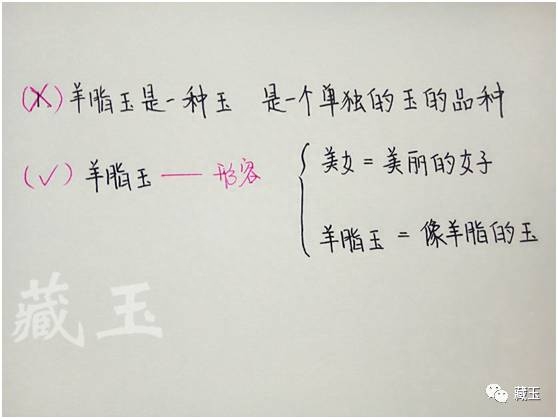 (X)羊脂玉是一种玉 是一个单独的玉的品种
(✓)羊脂玉——形容
美女=美丽的女子
羊脂玉=像羊脂的玉
藏玉
藏玉